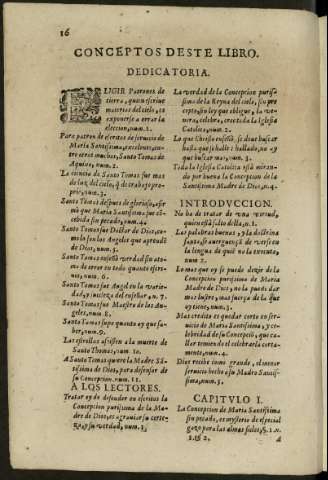 16
CONCEPTOS DESTE LIBRO.
DEDICATORIA.
ELIGIR Patrones de
tierra, quien escrive
materias del cielo, es
exponerse a errar la
eleccion, num. 1.
Para patron de escritos de
Maria Santissima, excelente, en
tre otros muchos, Santo Tomas de
Aquino, num. 2.
La ciencia de Santo Tomas fue mas
de luz del cielo, q de trabajo pro-
prio, num. 3.
Santo Tomas despues de glorioso, afir
mò que Maria Santissima fue cõ
cebida sin pecado, num. 4.
Santo Tomas fue Doctor de Dios, co-
mo lo son los Angeles que aprendẽ
de Dios, num. 5.
Santo Tomas enseñò verdad sin ato-
mo de error en todo quanto escri-
viò, num. 6.
Santo Tomas fue Angel en la
dad, y pureza del enseñar, n. 7.
Santo Tomas fue Maestro de los An-
geles, num. 8.
Santo Tomas supo quanto ay que sa-
ber, num. 9.
Las estrellas assisten a la muerte de
Santo Thomas, num. 10.
A Santo Tomas quiere la Madre Sã-
tissima de Dios, para defensor de
su Concepcion. num. 11.
A LOS LECTORES.
Tratar oy de defender en escritos la
Concepcion purissima de la Ma-
dre de Dios, es agraviar su certe-
za, y su verdad, num. 1.
La verdad de la Concepcion puris-
sima de la Reyna del cielo, sin pre
cepto, sin ley que obligue, la ve-
nera, celebra, cree toda la Iglesia
Catolica, num. 2.
Lo que Christo enseñò, se deve buscar
hasta que se halle: hallado, no ay
que buscar mas, num. 3.
Toda la Iglesia Catolica està miran-
do por buena la Concepcion de la
Santissima Madre de Dios, n. 4.
INTRODUCCION.
No ha de tratar de una virtud,
quien està falto della, n. 1.
Las palabras buenas, y la doctrina
santa, se averguença de verse en
la lengua de quien no la executa,
num. 2.
Lo mas que oy se puede dezir de la
Concepcion purissima de Maria
Madre de Dios, no la puede dar
mas lustre, mas fuerça de la que
ay tiene, num. 3.
Mas credito es quedar corto en ser-
vicio de Maria Santissima, y ce-
lebridad de su Concepciõ, que ca-
llar temiendo el celebrarla corta-
mente, num. 4.
Dios recibe como grande, el menor
servicio hecho a su Madre Santis-
sima, num. 5.
CAPITULO I.
La Concepcion de Maria Santissima
sin pecado, es mysterio de especial
gozo para las almas solas, §. 1. N.
1. §. 2.